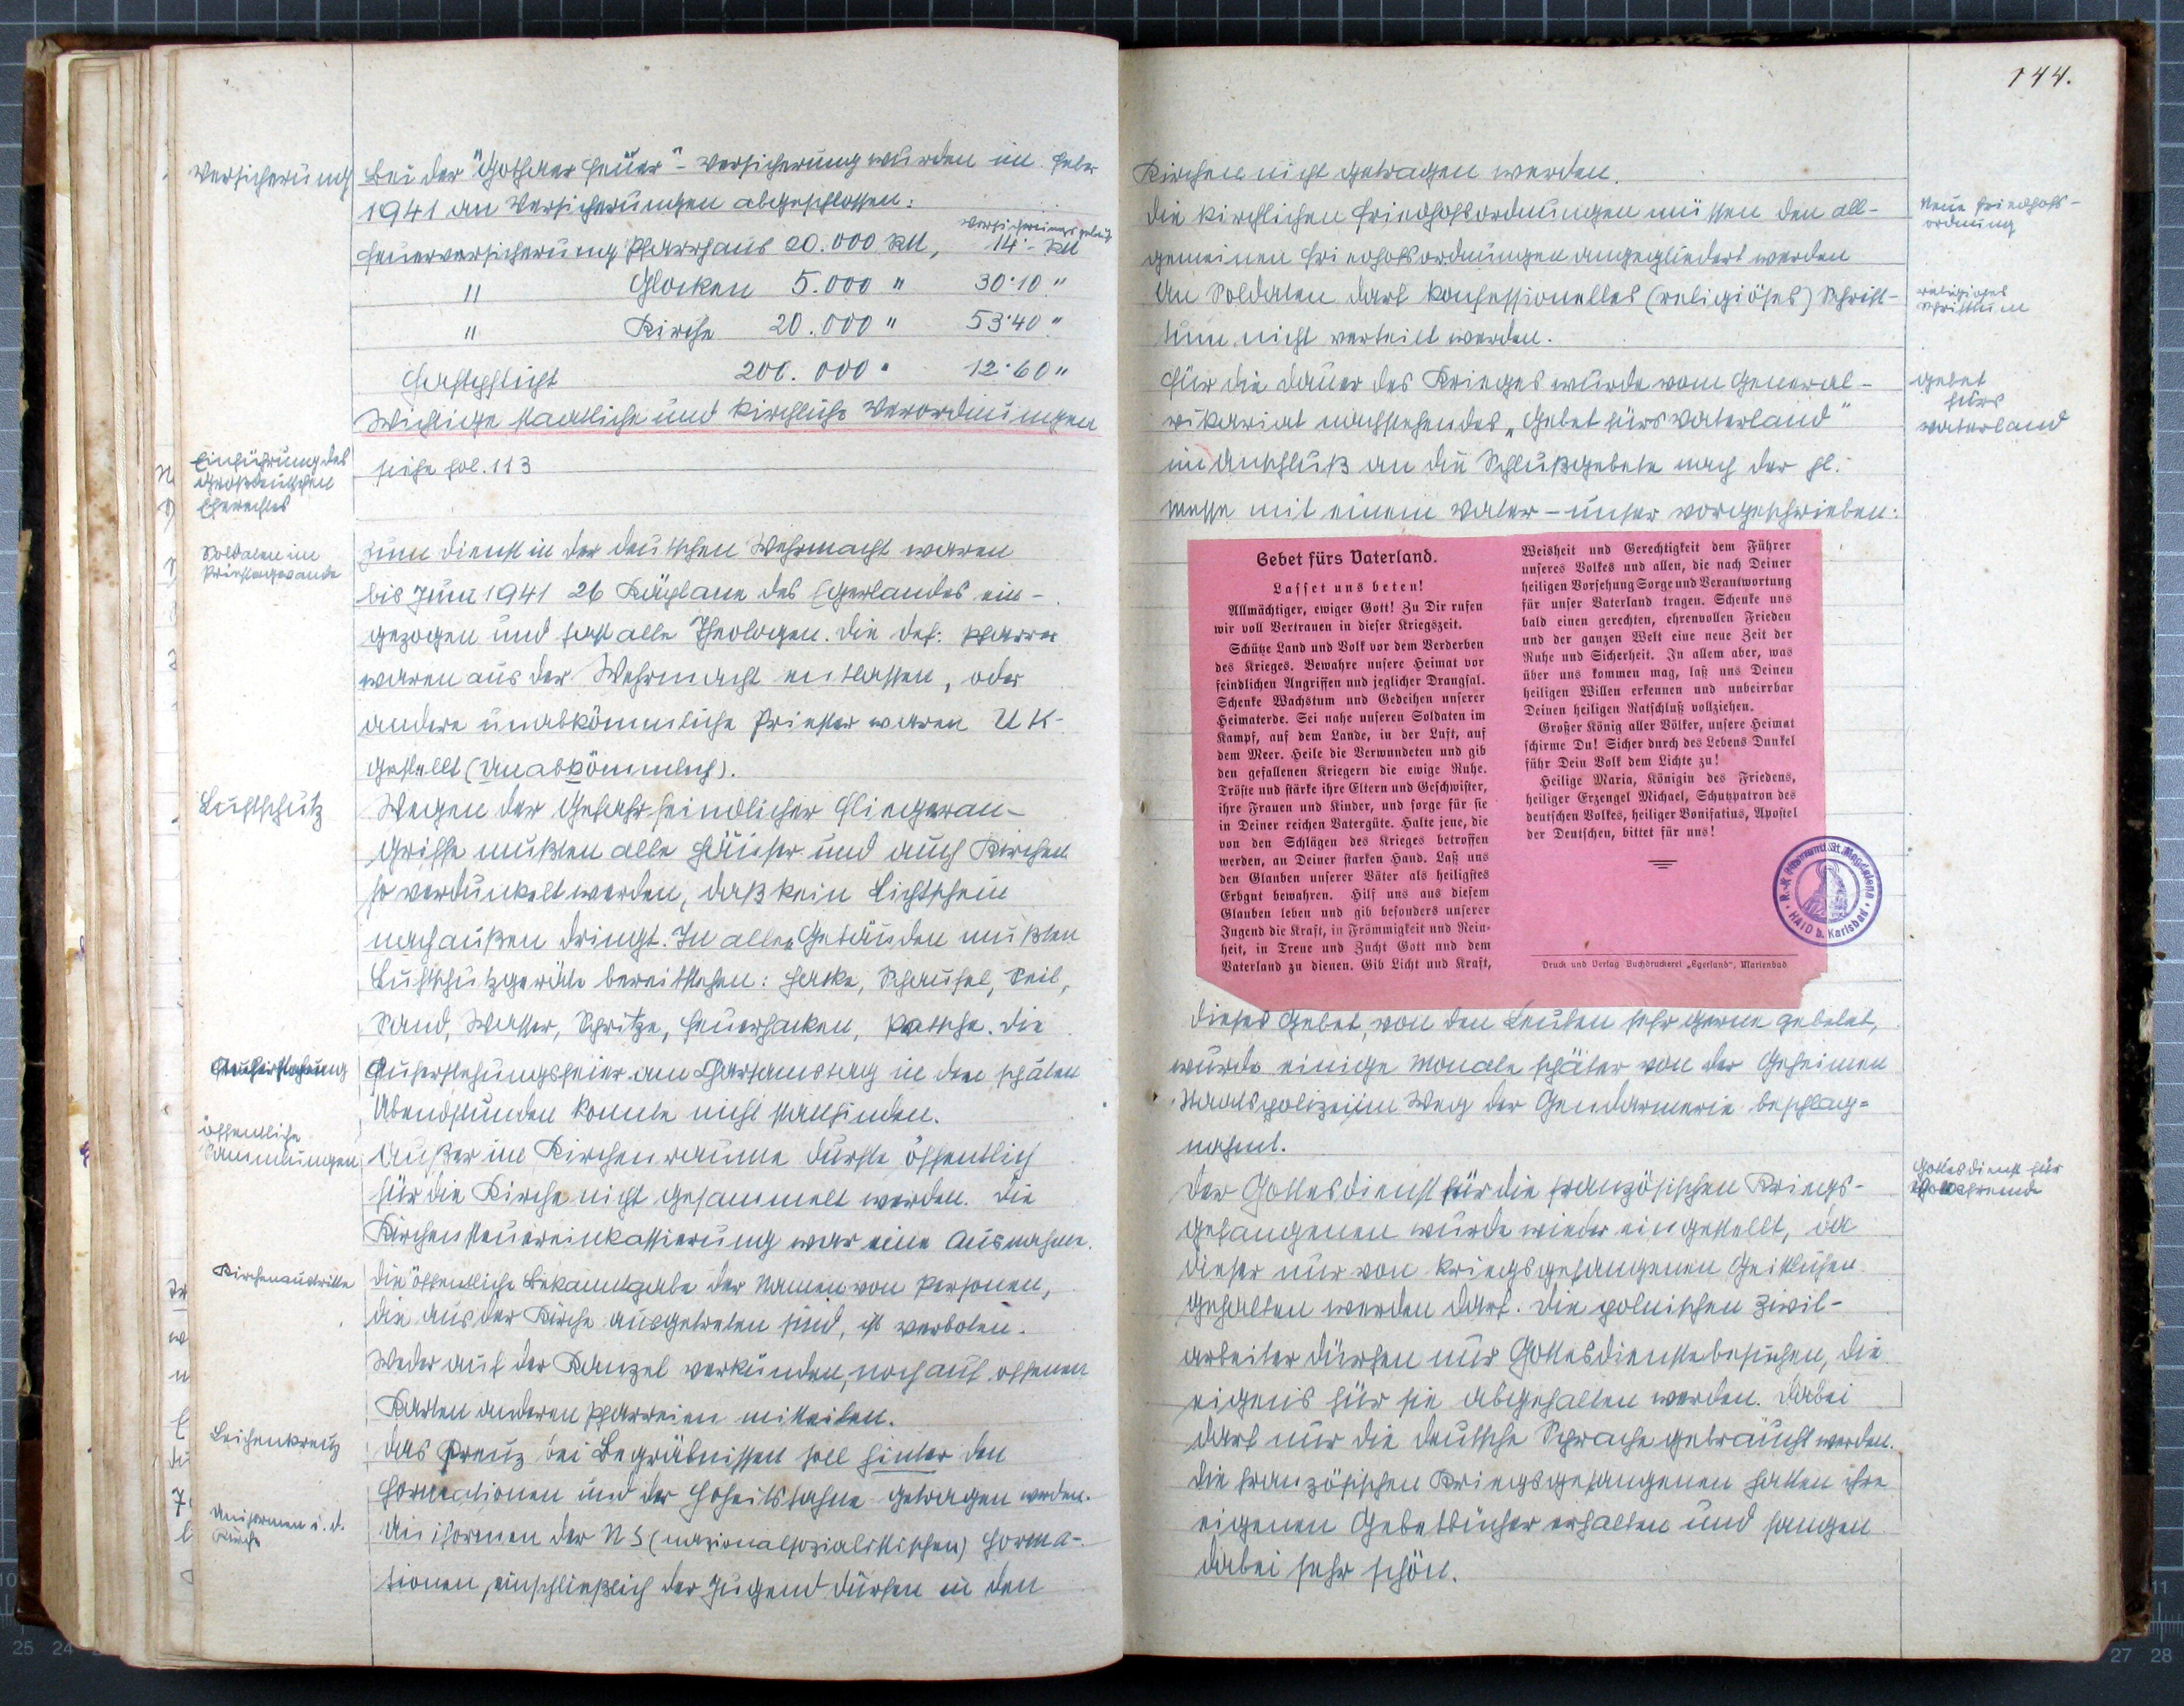 Versicherung
Bei der "Gothaer Feuer"- Versicherung wurden im Feber
1941 an Versicherungen abgeschlossen:
Versicherungsgebühr
Feuerversicherung Pfarrhaus 20.000 RM, 14·- RM
" Glocken 5.000 " 30·10 "
" Kirche 20.000 " 53·40 "
Haftpflicht 200.000 " 12·60 "
Wichtige staatliche und kirchliche Verordnungen
Einführung des
Großdeutschen
Eherechtes
siehe fol. 113
Soldaten im
Priestergewande
Zum Dienst in der deutschen Wehrmacht waren
bis Juni 1941 26 Kapläne des Egerlandes ein-
gezogen und fast alle Theologen. Die def: Pfarrer
waren aus der Wehrmacht entlassen, oder
andere unabkömmliche Priester waren UK-
gestellt (Unabkömmlich).
Luftschutz
Wegen der Gefahr feindlicher Fliegeran-
griffe mußten alle Häuser und auch Kirchen
so verdunkelt werden, daß kein Lichtschein
nach außen dringt. In allen Gebäuden mußten
Luftschutzgeräte bereitstehen: Hacke, Schaufel, Beil,
Sand, Wasser, Spritze, Feuerhacken, Patsche. Die
Auferstehung
Auferstehungsfeier am Karsamstag in den späten
Abendstunden konnte nicht stattfinden.
öffentliche
Sammlungen
Außer im Kirchenraume durfte öffentlich
für die Kirche nicht gesammelt werden. Die
Kirchensteuereinkassierung war eine Ausnahme.
Kirchenaustritte
Die öffentliche Bekanntgabe der Namen von Personen,
die aus der Kirche ausgetreten sind, ist verboten.
Weder auf der Kanzel verkünden, noch auf offenen
Karten anderen Pfarreien mitteilen.
Leichenkreuz
Das Kreuz bei Begräbnissen soll hinter den
Formationen und der Hoheitsfahne getragen werden.
Uniformen i. d.
Kirche
Uniformen der NS (nazionalsozialistischen) Forma-
tionen, einschließlich der Jugend dürfen in den
144.
Kirchen nicht getragen werden.
Neue Friedhofs-
ordnung
Die kirchlichen Friedhofsordnungen müssen den all-
gemeinen Friedhofsordnungen angegliedert werden
religiöses
Schrifttum
An Soldaten darf konfessionelles (religiöses) Schrift-
tum nicht verteilt werden.
Gebet
fürs
Vaterland
Für die Dauer des Krieges wurde vom General-
vikariat nachstehendes „Gebet fürs Vaterland"
im Anschluß an die Schlußgebete nach der hl.
Messe mit einem Vater-unser vorgeschrieben:
Gebet fürs Vaterland.
Lasset uns beten!
Allmächtiger, ewiger Gott! Zu Dir rufen
wir voll Vertrauen in dieser Kriegszeit.
Schütze Land und Volk vor dem Verderben
des Krieges. Bewahre unsere Heimat vor
feindlichen Angriffen und jeglicher Drangsal.
Schenke Wachstum und Gedeihen unserer
Heimaterde. Sei nahe unseren Soldaten im
Kampf, auf dem Lande, in der Luft, auf
dem Meer. Heile die Verwundeten und gib
den gefallenen Kriegern die ewige Ruhe.
Tröste und stärke ihre Eltern und Geschwister,
ihre Frauen und Kinder, und sorge für sie
in Deiner reichen Vatergüte. Halte jene, die
von den Schlägen des Krieges betroffen
werden, an Deiner starken Hand. Laß uns
den Glauben unserer Väter als heiligstes
Erbgut bewahren. Hilf uns aus diesem
Glauben leben und gib besonders unserer
Jugend die Kraft, in Frömmigkeit und Rein-
heit, in Treue und Zucht Gott und dem
Vaterland zu dienen. Gib Licht und Kraft,
Weisheit und Gerechtigkeit dem Führer
unseres Volkes und allen, die nach Deiner
heiligen Vorsehung Sorge und Verantwortung
für unser Vaterland tragen. Schenke uns
bald einen gerechten, ehrenvollen Frieden
und der ganzen Welt eine neue Zeit der
Ruhe und Sicherheit. In allem aber, was
über uns kommen mag, laß uns Deinen
heiligen Willen erkennen und unbeirrbar
Deinen heiligen Ratschluß vollziehen.
Großer König aller Völker, unsere Heimat
schirme Du! Sicher durch des Lebens Dunkel
führ Dein Volk dem Lichte zu!
Heilige Maria, Königin des Friedens,
heiliger Erzengel Michael, Schutzpatron des
deutschen Volkes, heiliger Bonifatius, Apostel
der Deutschen, bittet für uns!
Druck und Verlag Buchdruckerei „Egerland", Marienbad
St. Magdalena
HAID b. Karlsbad
Dieses Gebet, von den Leuten sehr gerne gebetet,
wurde einige Monate später von der Geheimen
Staatspolizei im Weg der Gendarmerie beschlag-
nahmt.
Gottesdienst für
Volksfremde
Der Gottesdienst für die französischen Kriegs-
gefangenen wurde wieder eingestellt, da
dieser nur von kriegsgefangenen Geistlichen
gehalten werden darf. Die polnischen Zivil-
arbeiter dürfen nur Gottesdienste besuchen, die
eigens für sie abgehalten werden. Dabei
darf nur die deutsche Sprache gebraucht werden.
Die französischen Kriegsgefangenen hatten ihre
eigenen Gebetbücher erhalten und sangen
dabei sehr schön.